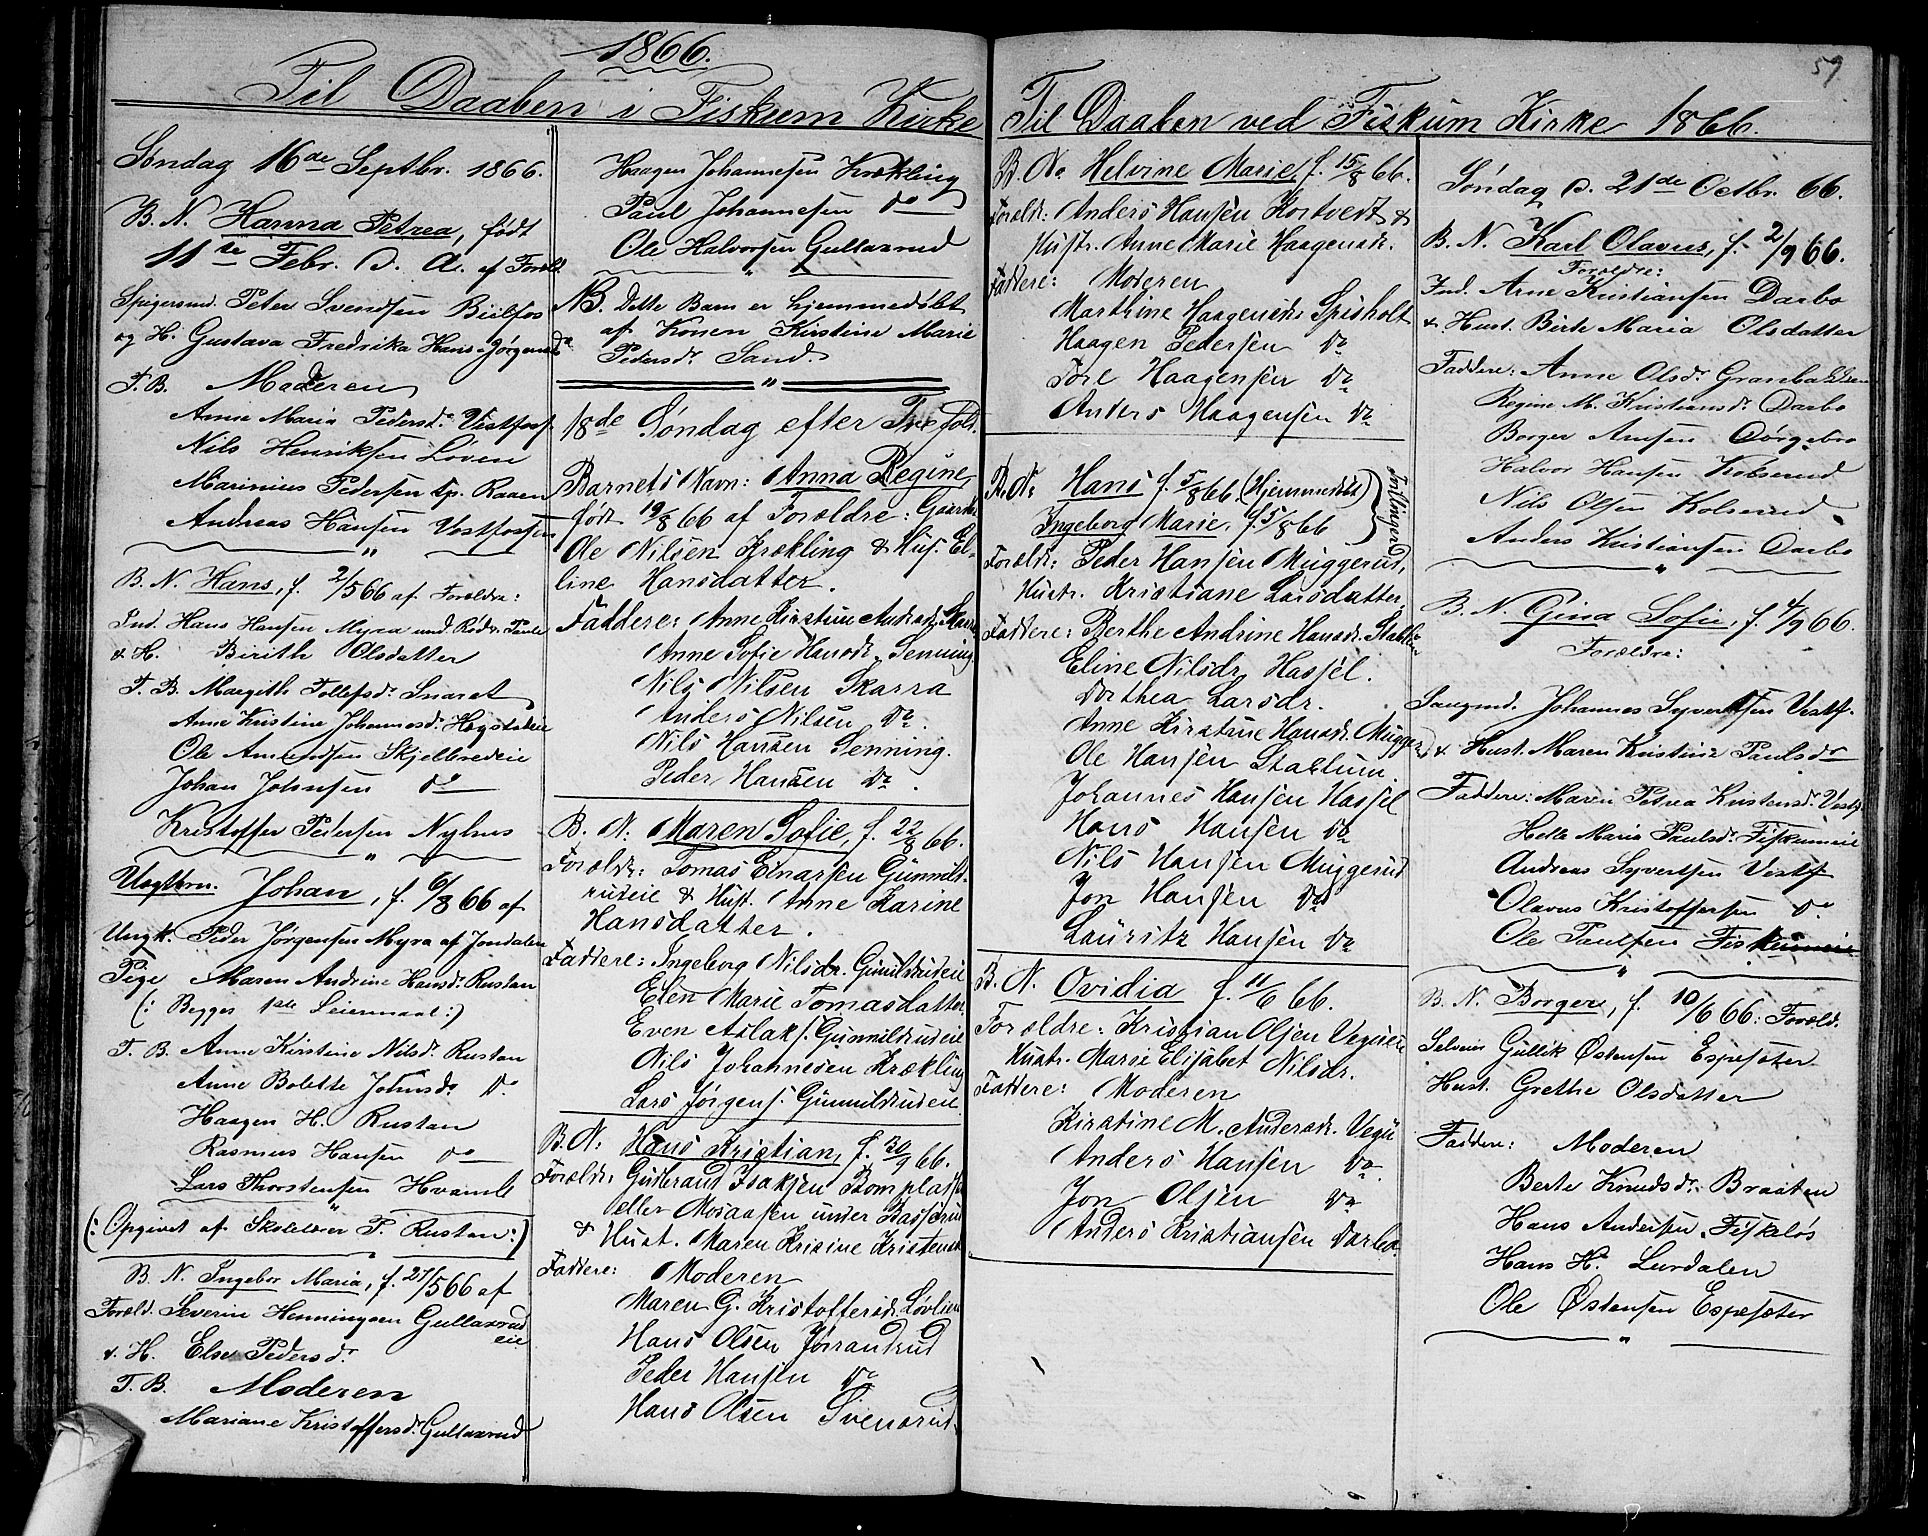 1866.
Til Daaben i Fiskum Kirke
Søndag 16de Septbr. 1866.
B. N. Hanna Petrea, født
11te Febr. d. A. af Foræld.
Spigersmd. Peter Svendsen
og H. Gustava Fredrika Hans Jørgensd.
F. B. Moderen
Anne Maria Pedersdr. Vestfoss
Nils Henriksen Løven
Marinius Pedersen Raaen
Andreas Hansen Vestfossen
"
B. N. Hans, f. 2/5 66 af Forældre:
Ind. Hans Hansen Myra und.
& H. Birith Olsdatter
F. B. Margith Tollefsdr. Snaret
Anne Kristine Johannesdr.
Ole Amundsen Skjelbredeie
Johan Johnsen do
Kristoffer Pedersen Nyhus
"
Uægtbrn. Johan, f. 6/8 66 af
Ungk. Peder Jørgensen Myra af Jondalen
Pige Maren Andrine Hansdr. Rustan
(: Begges 1ste Leiermaal :)
F. B. Anne Kirstine Nilsdr. Rustan
Anne Bolette Johnsdr. do
Haagen H. Rustan
Rasmus Hansen do
Lars Thorstensen Hvamb
"
(: Opgivet af Skolelærer P. Rustan :)
"
B. N. Ingebor Maria, f. 27/5 66 af
Foræld. Severin Henningsen Gullaxrud
eie
& H. Else Pedersdr.
F. B. Moderen
Mariane Kristoffersdr. Gullaxrud
Haagen Johannesen Krækling
Paul Johannesen do
Ole Halvorsen Gullaxrud
"
NB. Dette Barn er hjemmedøbt
af Konen Kirstine Marie
Pedersdr. Sand
"
18de Søndag efter Trefold.
Barnets Navn: Anna Regine,
født 19/8 66 af Forældre: Gaardm.
Ole Nilsen Krækling & Hus. El-
line Hansdatter.
Faddere: Anne Kirstine Andersdr. Skarra
Anne Sofie Hansdr. Senning
Nils Nilsen Skarra
Anders Nilsen do.
Nils Hansen Senning.
Peder Hansen do.
B. N. Maren Sofie, f. 22/8 66.
Foreldr: Tomas Einarsen Gunnild-
rudeie & Hust. Anne Karine
Hansdatter.
Faddere: Ingeborg Nilsdr. Gunildrudeie
Elen Marie Tomasdatter
Even Aslaks. Gunnildrudeie
Nils Johannesen Krækling
Lars Jørgens. Gunnildrudeie
B. N. Hans Kristian, f. 20/9 66.
Foreldr: Gulbrand Isaksen Komplads
eller Mosaasen under Basserud
& Hust. Maren Krisine Kristensdr.
Faddere: Moderen
Maren G. Kristoffersdr. Løvlien
Hans Olsen Jørrandrud
Peder Hansen do
Hans Olsen Svensrud.
59
Til Daaben ved Fiskum Kirke 1866.
B. N. Helvine Marie, f. 15/8 66.
Foreldr: Anders Hansen Kortvedt &
Hustr. Anne Marie Haagensdr.
Faddere: Moderen
Marthine Haagensdr. Spisholt
Haagen Pedersen do
Tore Haagensen do
Anders Haagensen do
B. N: Hans f. 5/8 66 (Hjemmedøbt)
Ingeborg Marie, f. 5/8 66
Tvillinger
Foreldr: Peder Hansen Muggerud,
Hustr. Kristiane Larsdatter.
Faddere: Berthe Andrine Hansdr. Stablum
Eline Nilsdr. Hassel.
Dorthea Larsdr.
Anne Kirstine Hansdr. Muggerud
Ole Hansen Stablum
Johannes Hansen Hassel
Hans Hansen do
Nils Hansen Muggerud
Jon Hansen do
Lauritz Hansen do
B. N. Ovidia f. 11/6 66.
Forældre: Kristian Olsen Vegueie
Hustr. Marie Elisabet Nilsdr.
Faddere: Moderen
Kirstine M. Andersdr. Vegu
Anders Hansen do.
Jon Olsen do
Anders Kristiansen Darbo.
Søndag d. 21de Octbr. 66.
B. N. Karl Olavus, f. 2/9 66.
Forældre:
Ind. Arne Kristiansen Darbo
& Hust. Birte Maria Olsdatter
Faddere: Anne Olsdr.
Regine M. Kristiansdr. Darbo
Borger Arnsen Dørgebro
Halvor Hansen Kolserud
Nils Olsen Kolserud
Anders Kristiansen Darbo
"
B. N. Gina Sofie, f. 4/9 66.
Forældre:
Saugmd. Johannes Syvertsen Vestf.
& Hust. Maren Kristine Paulsdr
Faddere: Maren Petrea Kristensdr. Vestf.
Helle Marie Paulsdr. Fiskumeie
Andreas Syvertsen Vestf.
Olavus Kristoffersen do
Ole Paulsen Fiskumeie
"
B. N. Borgere, f. 10/6 66: Foræld.
Selveier Gullik Østensen Espesæter
Hust. Grethe Olsdatter
Faddere: Moderen
Berte Knudsdr. Braaten
Hans Andersen Fiskeløs
Hans H. Lurdalen
Ole Østensen Espesæter
"